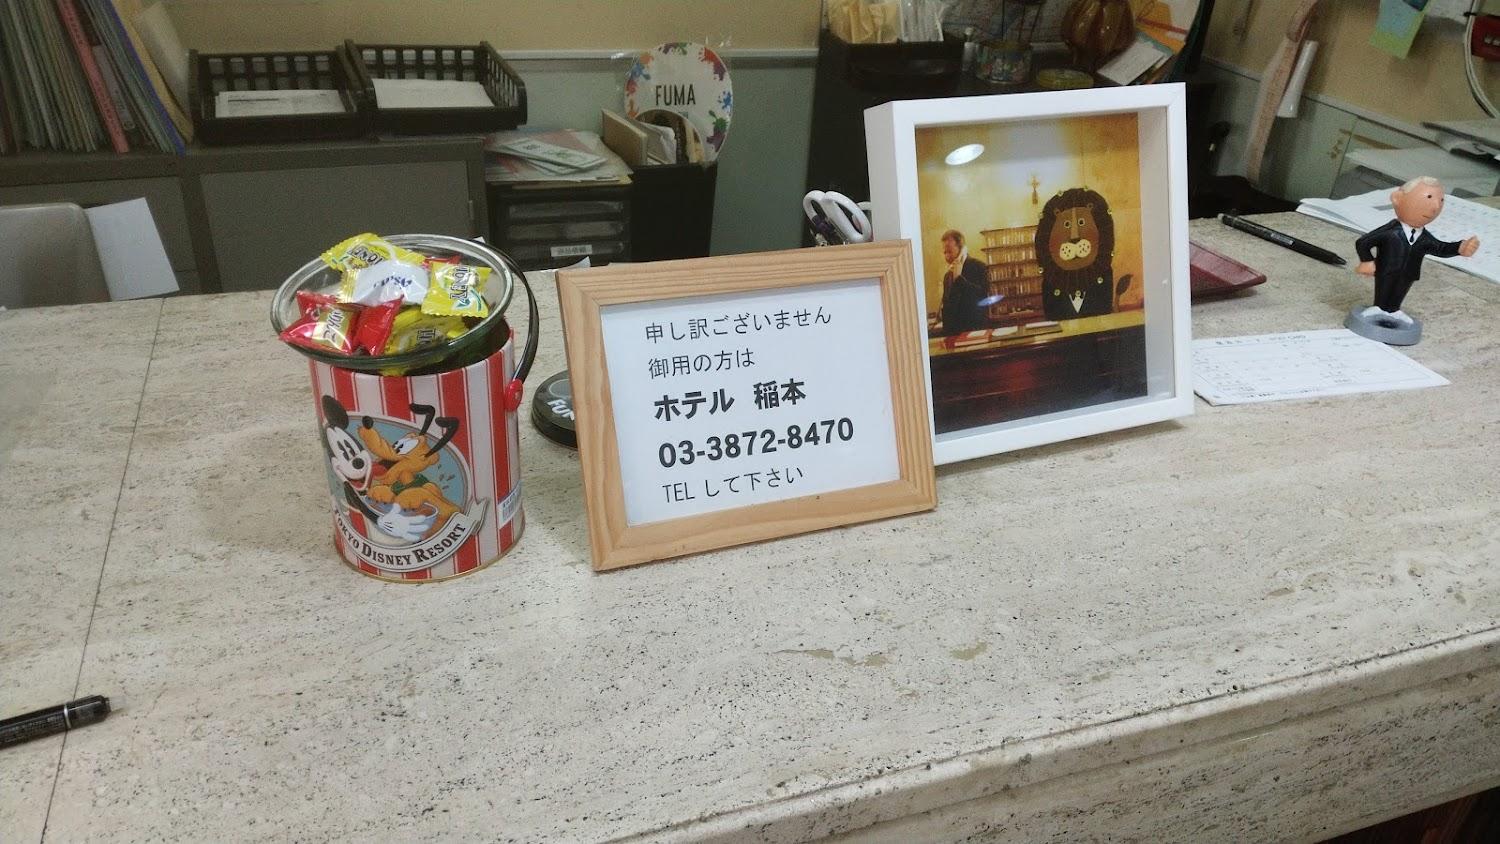 FUMA
申し訳ございません
御用の方は
ホテル 稲本
03-3872-8470
TELして下さい
TOKYO DISNEY RESORT